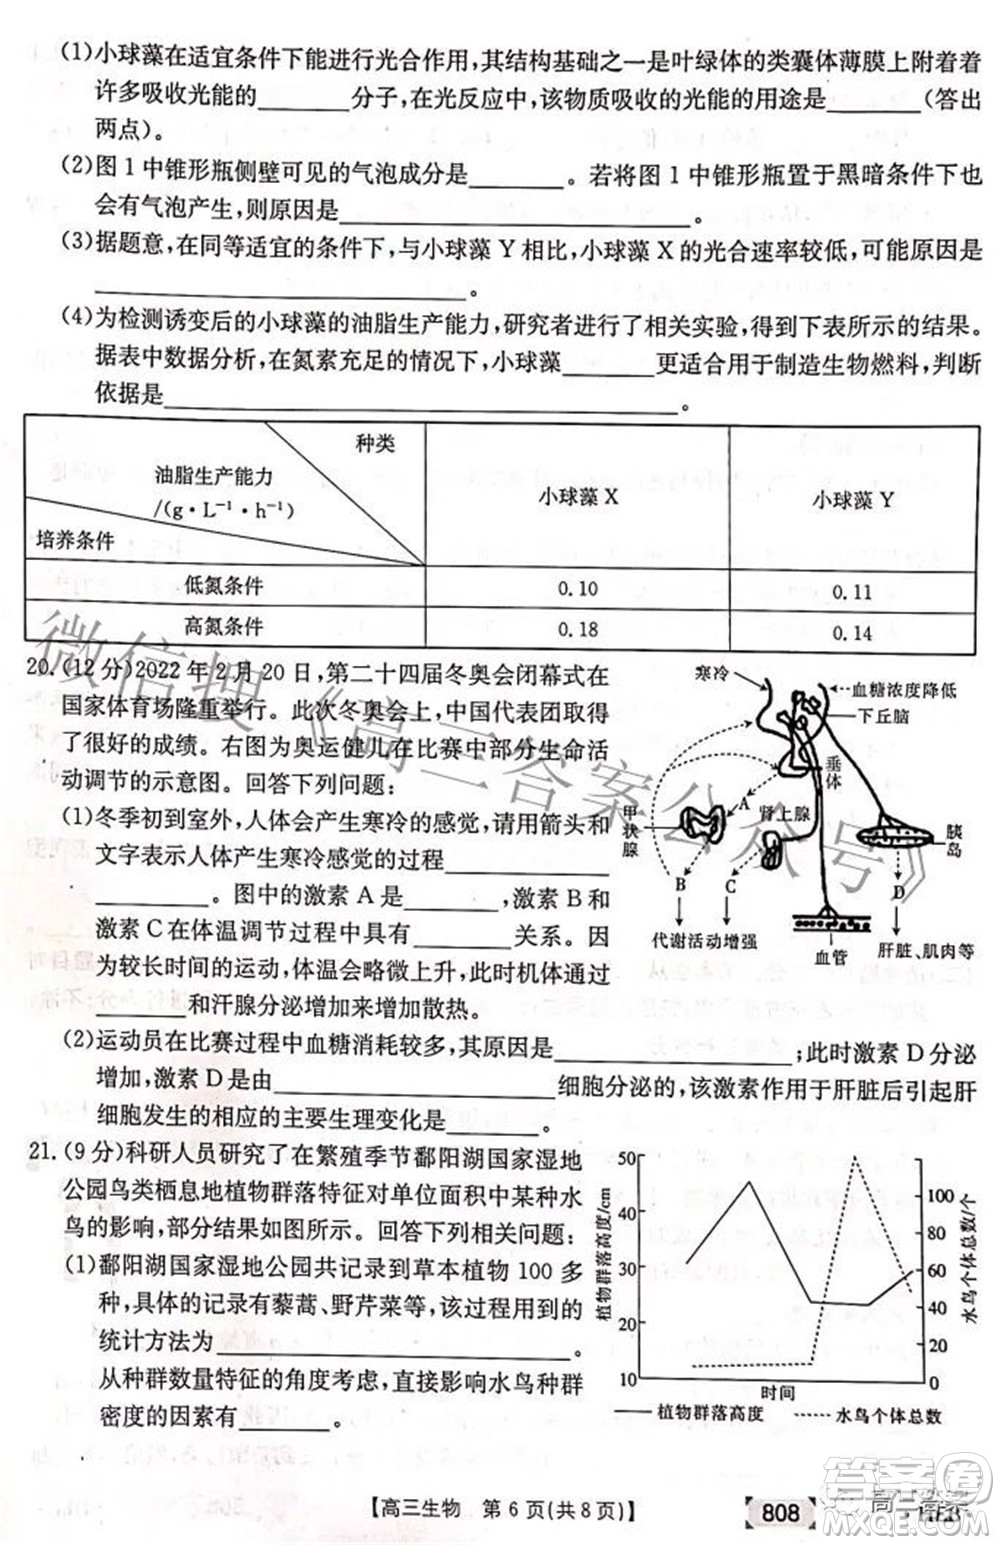 (1)小球藻在适宜条件下能进行光合作用,其结构基础之一是叶绿体的类囊体薄膜上附着着
许多吸收光能的________分子,在光反应中,该物质吸收的光能的用途是______(答出
两点)。
(2)图1中锥形瓶侧壁可见的气泡成分是________。若将图1中锥形瓶置于黑暗条件下也
会有气泡产生,则原因是____________________。
(3)据题意,在同等适宜的条件下,与小球藻Y相比,小球藻X的光合速率较低,可能原因是
________________________________。
(4)为检测诱变后的小球藻的油脂生产能力,研究者进行了相关实验,得到下表所示的结果。
据表中数据分析,在氮素充足的情况下,小球藻________更适合用于制造生物燃料,判断
依据是____________________________________________。
种类
油脂生产能力
/(g·L⁻¹·h⁻¹)
培养条件
小球藻X
小球藻Y
低氮条件 0.10 0.11
高氮条件 0.18 0.14
20.(12分)2022年2月20日,第二十四届冬奥会闭幕式在
国家体育场隆重举行。此次冬奥会上,中国代表团取得
了很好的成绩。右图为奥运健儿在比赛中部分生命活
动调节的示意图。回答下列问题:
(1)冬季初到室外,人体会产生寒冷的感觉,请用箭头和
文字表示人体产生寒冷感觉的过程______________
____________。图中的激素A是________,
激素C在体温调节过程中具有________关系。因
为较长时间的运动,体温会略微上升,此时机体通过
________和汗腺分泌增加来增加散热。
(2)运动员在比赛过程中血糖消耗较多,其原因是____________________;此时激素D分泌
增加,激素D是由________________________细胞分泌的,该激素作用于肝脏后引起肝
细胞发生的相应的主要生理变化是________。
寒冷
血糖浓度降低
下丘脑
垂体
A
甲状腺
肾上腺
胰岛
B
C
D
代谢活动增强
血管
肝脏、肌肉等
21.(9分)科研人员研究了在繁殖季节鄱阳湖国家湿地
公园鸟类栖息地植物群落特征对单位面积中某种水
鸟的影响,部分结果如图所示。回答下列相关问题:
(1)鄱阳湖国家湿地公园共记录到草本植物100多
种,具体的记录有藜蒿、野芹菜等,该过程用到的
统计方法为______________________________。
从种群数量特征的角度考虑,直接影响水鸟种群
密度的因素有________。
植物群落高度/cm
50
40
30
20
10
时间
水鸟个体总数/个
100
80
60
40
20
0
植物群落高度
水鸟个体总数
【高三生物 第6页(共8页)】
808
微信搜《高三答案公众号》
答案圈